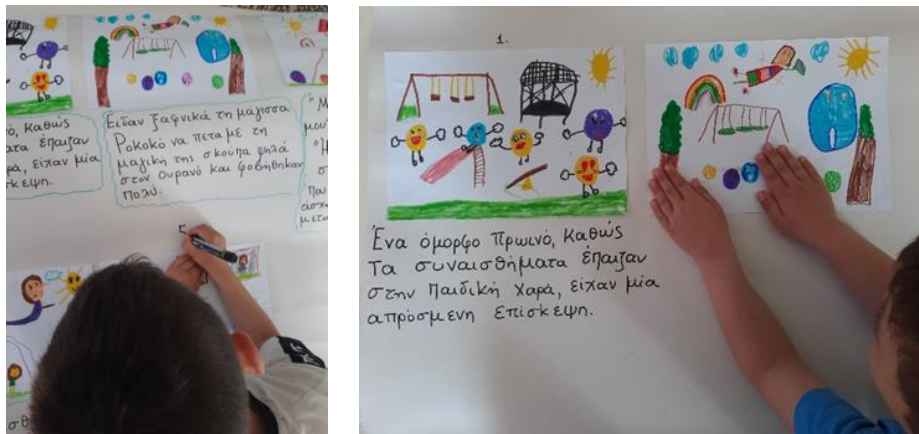 ό, καθώς
ατα έπαιζαν
ρά, είχαν μία
σκεψη.
Είδαν ξαφνικά τη μάγισσα
Ροκοκό να πετά με τη
μαγική της σκούπα ψηλά
στον ουρανό και φοβήθηκαν
πολύ.
"Μ
μου
"Η
σ
που
μετα
5
σθ
1.
Ένα όμορφο πρωινό, καθώς
τα συναισθήματα έπαιζαν
στην παιδική χαρά, είχαν μία
απρόσμενη επίσκεψη.